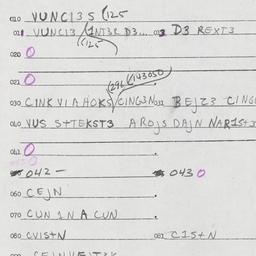 010 VUNCI3 S (125
011 VUNCI3 (1NT3R D3... 013 D3 REXT3
(125
020 O
021 O
(296 (143050
030 CINKVIAHOKS/CING3N 031 BEJZ3 CING
040 VUS S++EKST3 AROJS DAJN NAR1S+3
041 O
042 - 043 O
060 CEJN
070 CUN 1N A CUN
080 CVIS+N 081 C1S+N